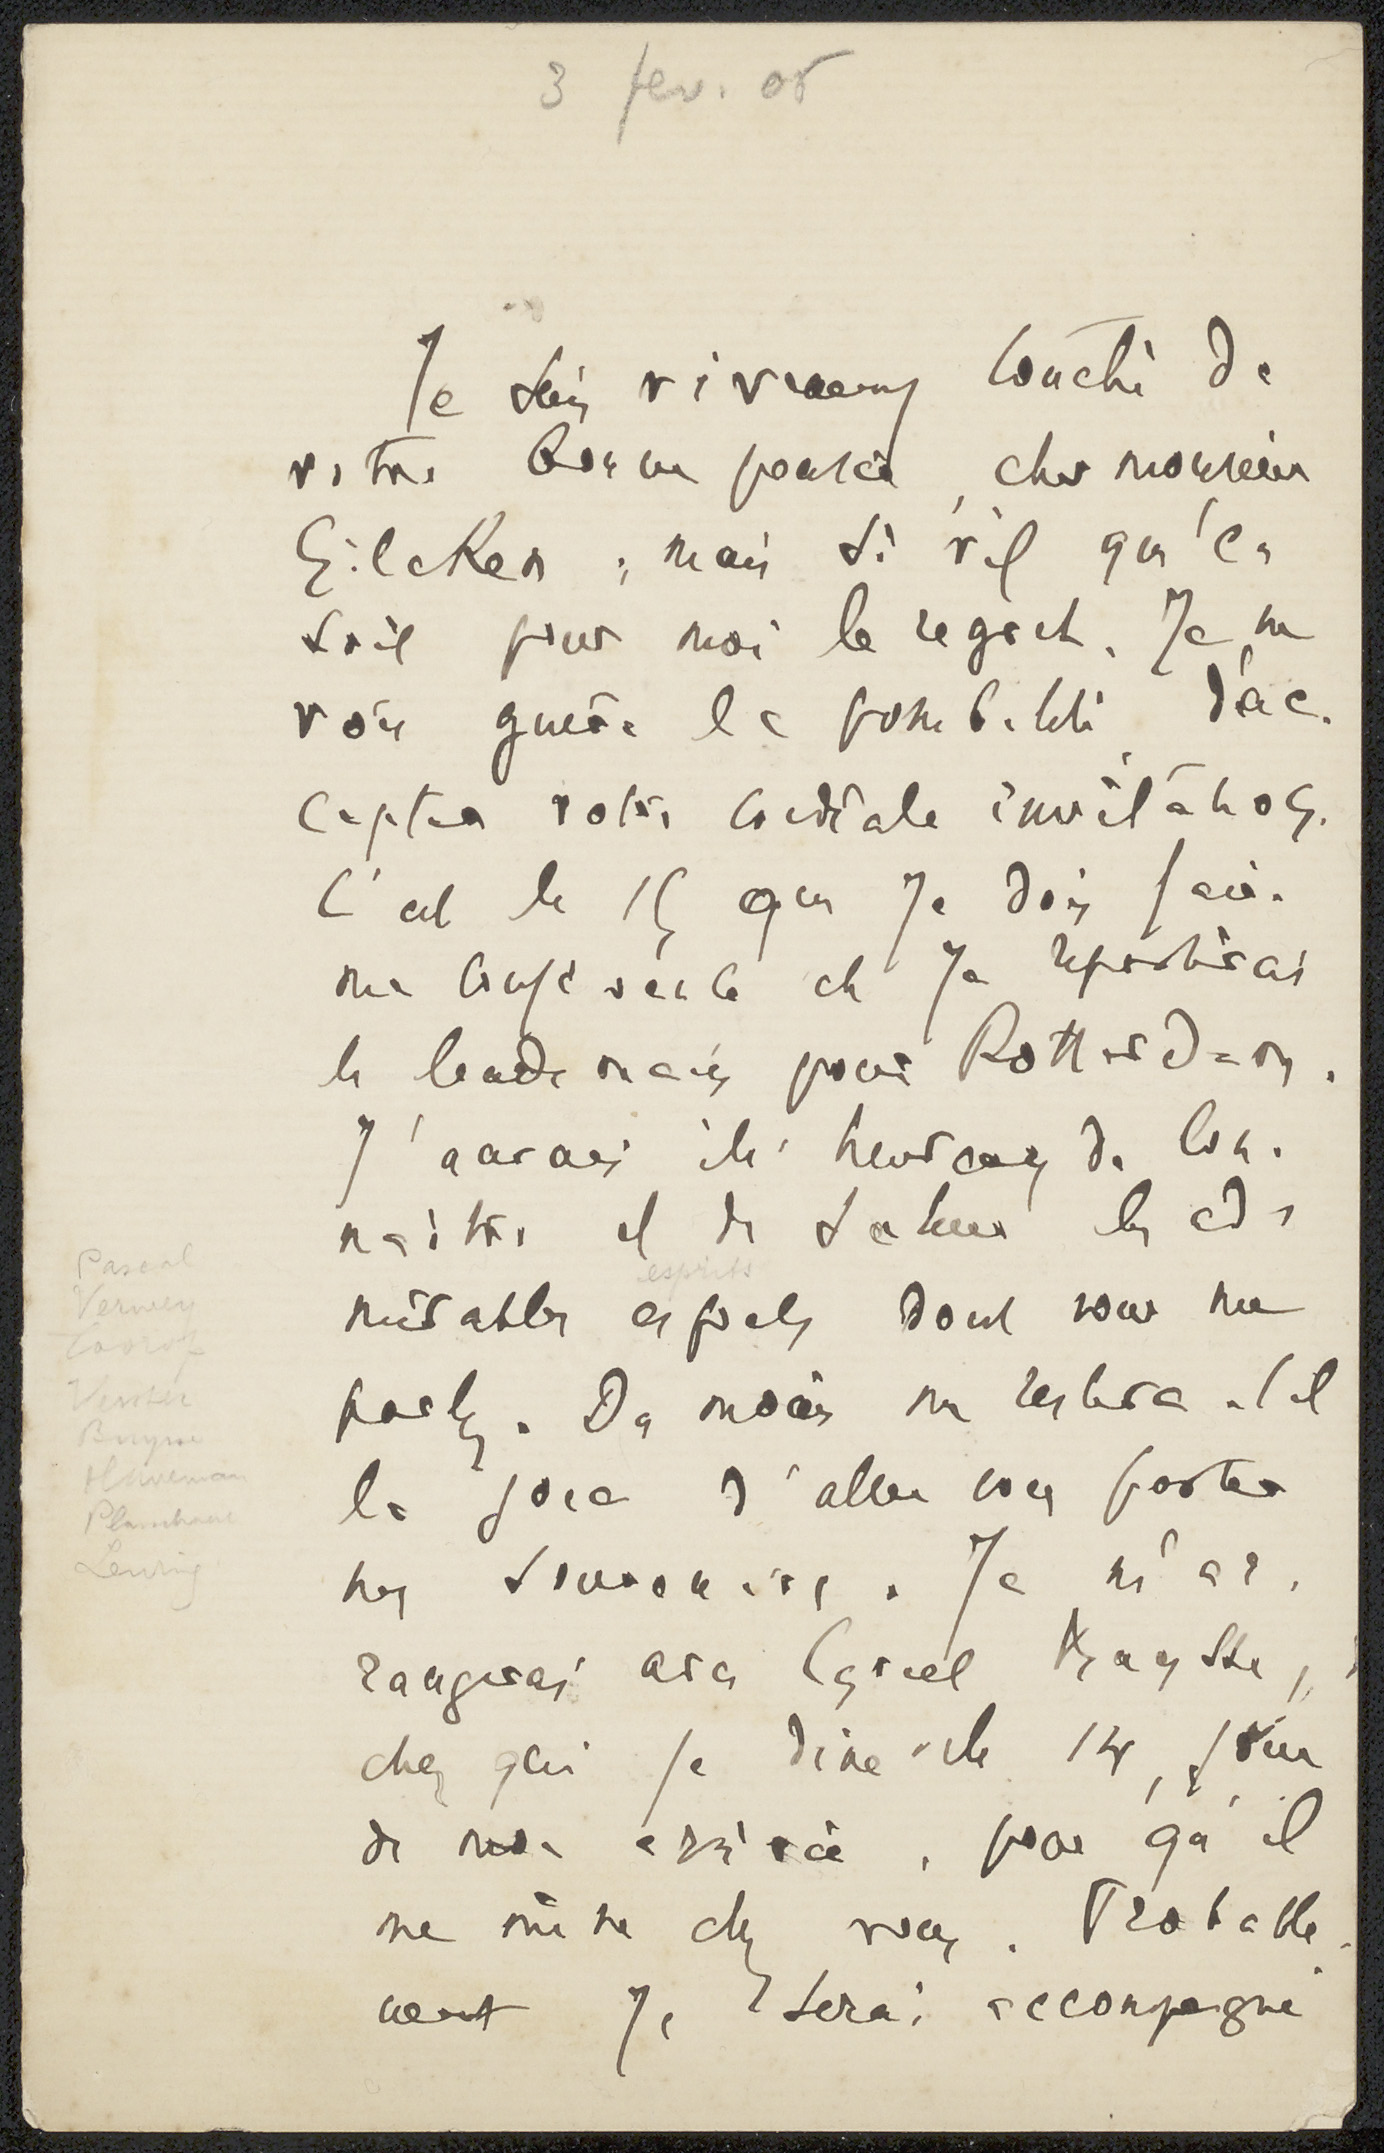 3 fev. 05
Je suis vivement touché de
votre bonne pensée, cher monsieur
Zilcken ; mais si vif qu'en
soit pour moi le regret, Je ne
vois guère la possibilité d'ac-
cepter votre cordiale invitation.
C'est le 15 que Je dois faire
ma conférence et Je repartirai
le lendemain pour Rotterdam.
J'aurais été heureux de con-
naître et de saluer les ad-
esprits
mirables esprits dont vous me
parlez. Du moins me restera-t-il
la joie d'aller vous porter
mes souvenirs. Je m'ar-
rangerai avec Cyriel Buysse,
chez qui Je dîne le 14,
de mon arrivée, pour qu'il
me mène chez vous. Probable-
ment Je serai accompagné
Pascal
Verwey
Toorop
Verster
Buysse
Haverman
Plasschaert